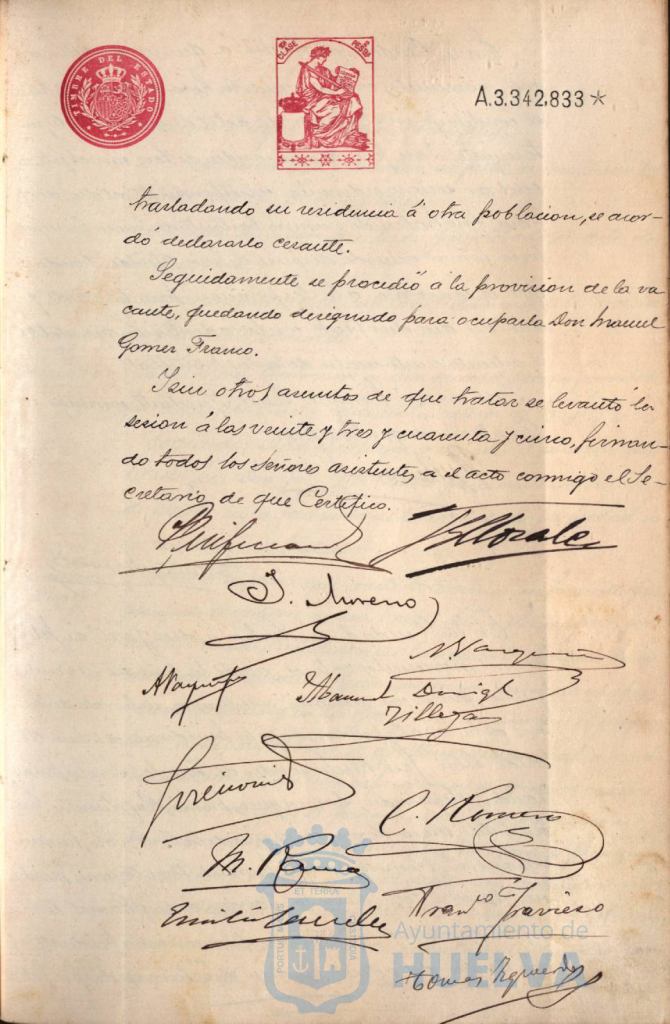 TIMBRE DEL ESTADO
CLASE PESETAS
A.3.342.833*
trasladando su residencia á otra poblacion, se acor-
dó declararlo cesante.
Seguidamente se procedió á la provision de la va
cante, quedando designado para ocuparla Don Manuel
Gomez Franco.
Y sin otros asuntos de que tratar se levantó la
sesion á las veinte y tres y cuarenta y cinco, firman-
do todos los Señores asistentes a el acto conmigo el Se-
cretario, de que Certifico.
Morales
J. Moreno
Manuel
Villegas
C. Romero
M.
Emilio
Travieso
Ayuntamiento de
HUELVA
Tomas